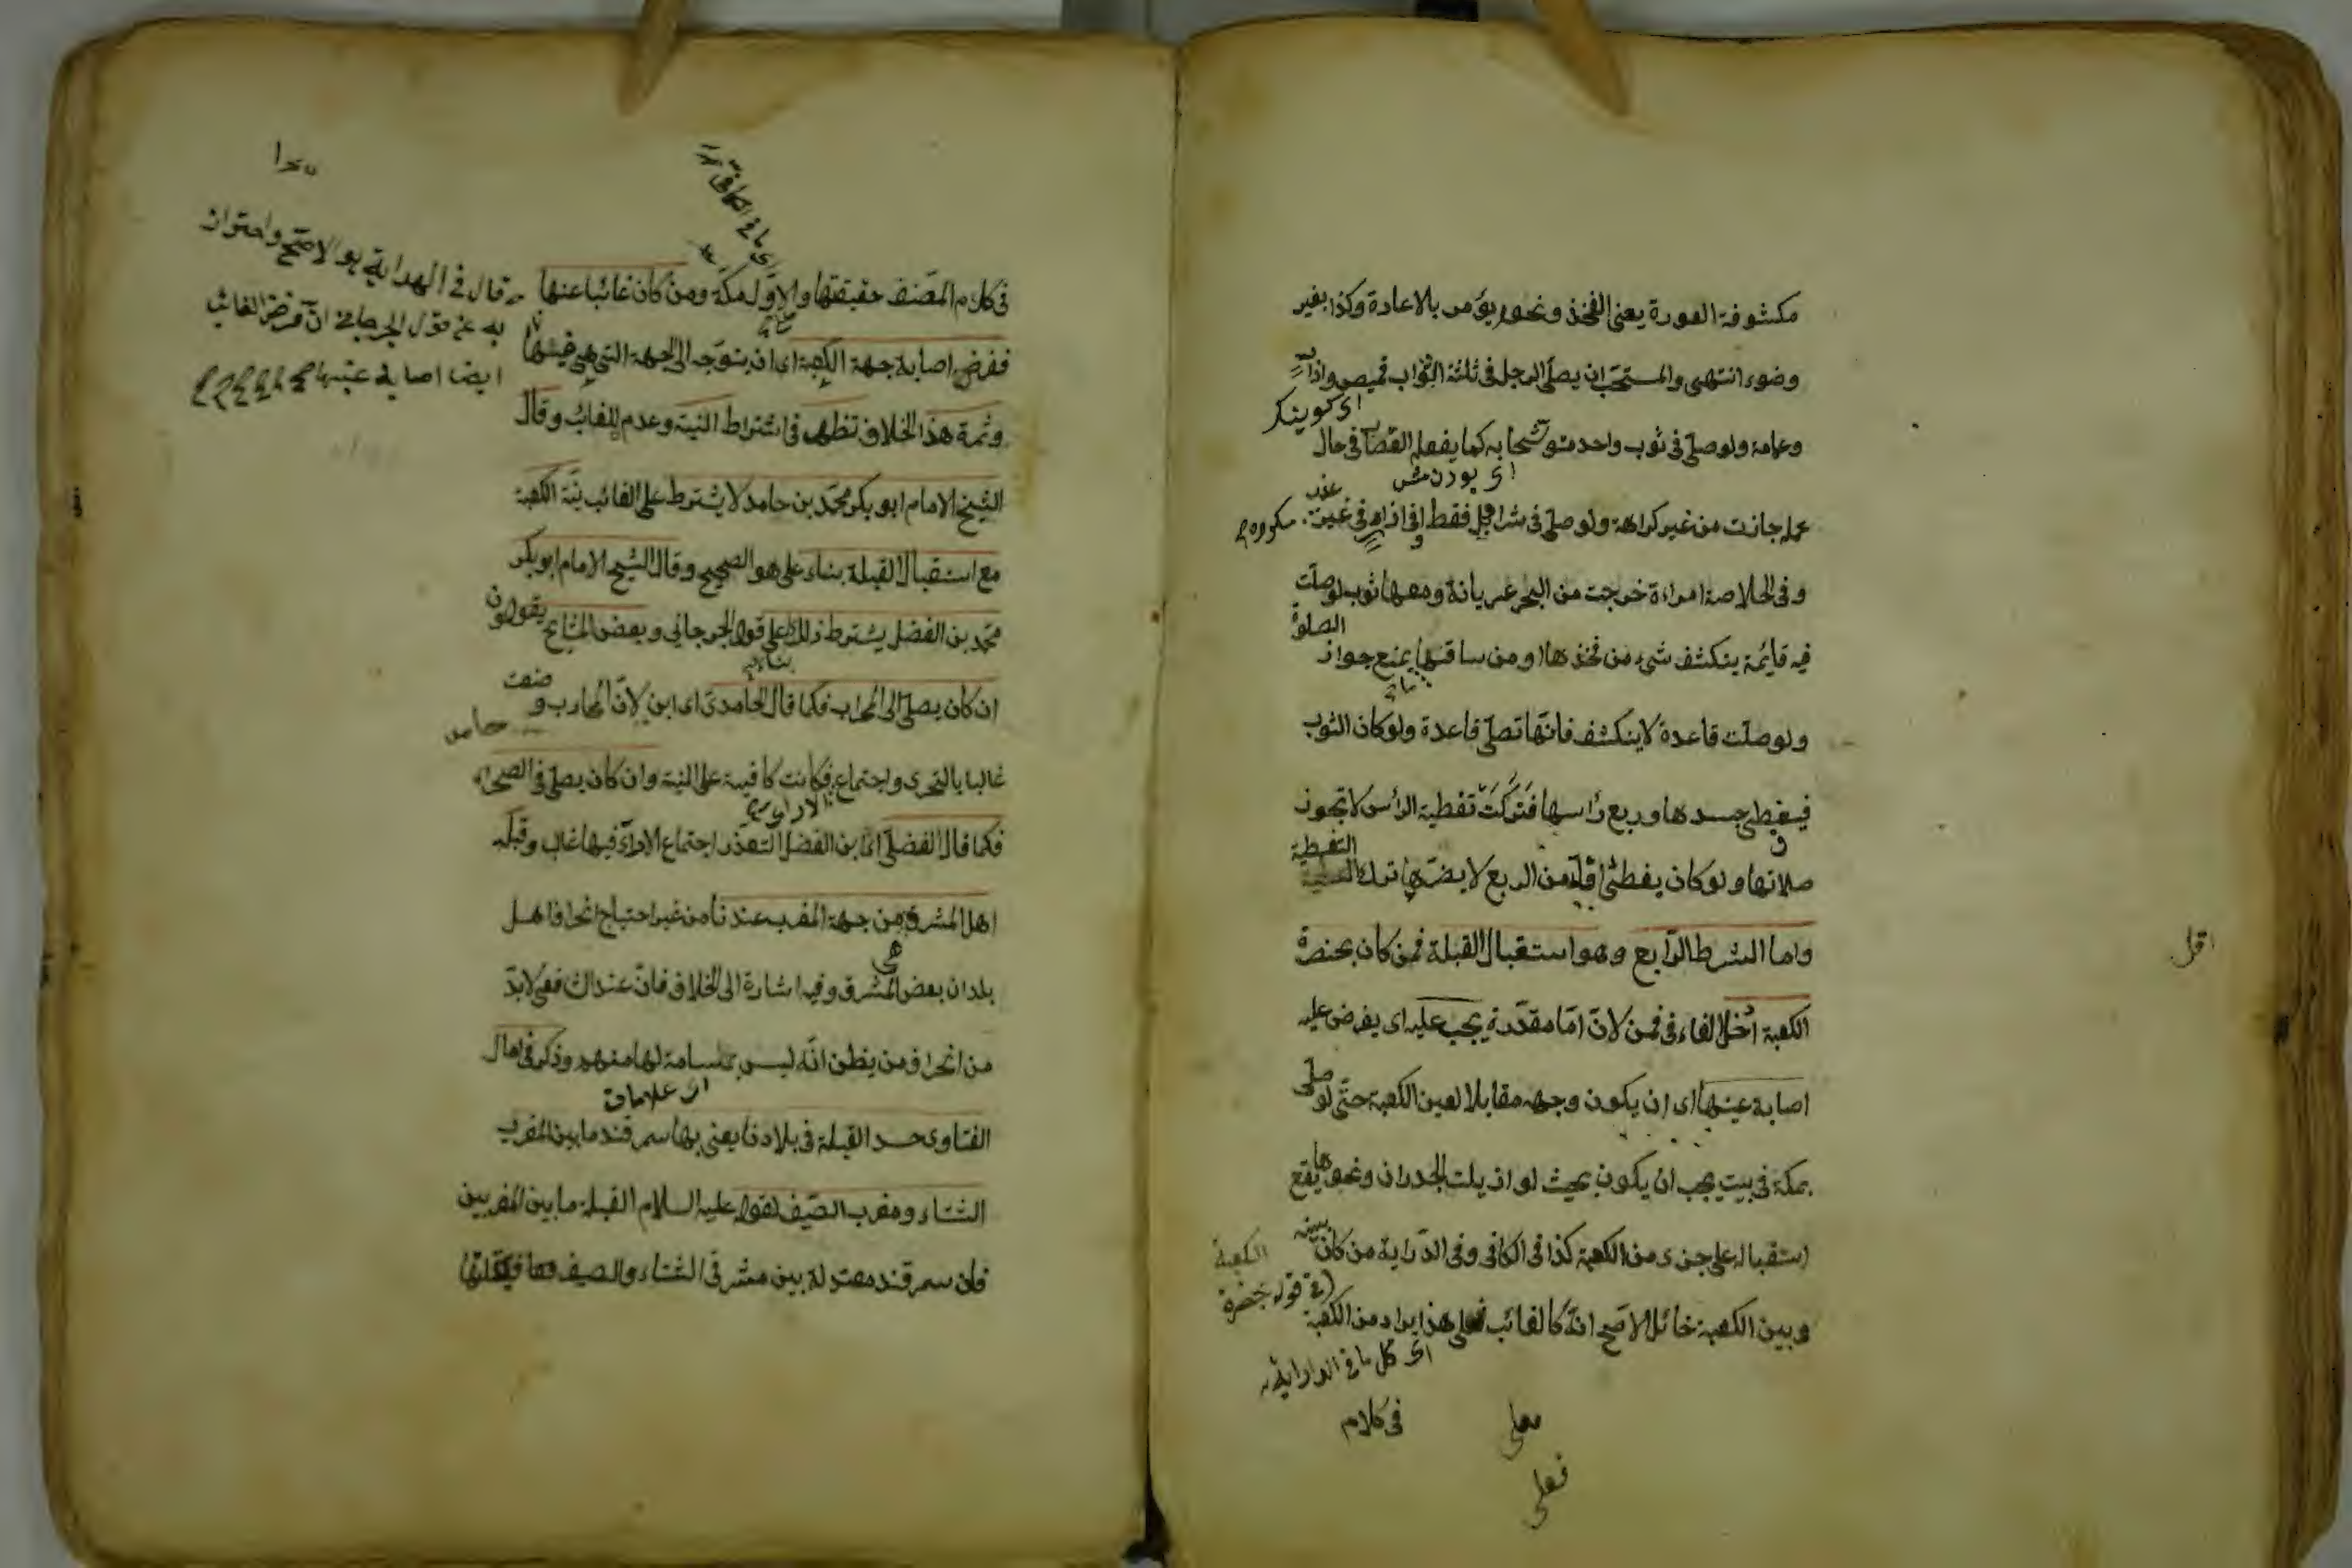 مكشوفة العورة يعنى الفخذ ونحوه يؤمر بالاعادة وكذا بغير
وضوء انتهى والمستحب ان يصلى الرجل فى ثلثة اثواب قميص وازار
اى كوينكر
وعمامة ولو صلى فى ثوب واحد متوشحا به كما يفعله القصار فى حال
عمله جازت من غير كراهة ولو صلى فى سراويل فقط او فى ازار فى غير
عذر
مكروه
وفى الخلاصة امراءة خرجت من البحر عريانة ومعها ثوب لو صلت
فيه قايمة ينكشف شىء من فخذها او من ساقها يمنع جواز
الصلوة
ولو صلت قاعدة لا ينكشف فانها تصلى قاعدة ولو كان الثوب
فيغطى جسدها وربع رأسها فتركت تغطية الرأس لا تجوز
صلاتها ولو كان يغطى اقل من الربع لا يضرها ترك
التغطية
اقل
واما الشرط الرابع وهو استقبال القبلة فمن كان بحضرة
الكعبة ادخل الفاء فى فمن لان اما مقدرة يجب عليه اى يفرض عليه
اصابة عينها اى ان يكون وجهه مقابلا لعين الكعبة حتى لو صلى
بمكة فى بيت يجب ان يكون بحيث لو ازيلت الجدران ونحوها يقع
استقباله على جزء من الكعبة كذا فى الكافى وفى الدراية من كان بينه
وبين الكعبة حائل الاصح انه كالغائب فعلى هذا يراد من الكعبة
الكعبة
فى قوله بحضرة
فى كلام
فعلى
فى كلام المصنف حقيقتها والاول مكة ومن كان غائبا عنها
ففرضه اصابة جهة الكعبة اى ان يتوجه الى الجهة التى هى فيها
وثمرة هذا الخلاف تظهر فى اشتراط النية وعدمه للغائب وقال
الشيخ الامام ابو بكر محمد بن حامد لا يشترط على الغائب نية الكعبة
مع استقبال القبلة بناء على هو الصحيح وقال الشيخ الامام ابو بكر
محمد بن الفضل يشترط ذلك على قول الجرجانى وبعض المشايخ يقولون
ان كان يصلى الى المحراب فكما قال الحامدى اى ابن لان المحارب وضعت
حامد
غالبا بالتحرى واجتماع فكانت كافية على النية وان كان يصلى فى الصحراء
فكما قال الفضلى اى ابن الفضل لتعذر اجتماع الاراء فيها غالب وقبلة
اهل المشرق هى من جهة المغرب عندنا من غير احتياج انحراف اهل
بلدان بعض المشرق وفيه اشارة الى الخلاف فان عند الشافعى لا بد
من انحراف من يظن انه ليس بمسامة لها منهم وذكر فى امال
الفتاوى حد القبلة فى بلادنا يعنى بها سمرقند ما بين المغرب
اى علامات
الشتاء ومغرب الصيف لقوله عليه السلام القبلة ما بين المغربين
فان سمرقند معتدلة بين مشرقى الشتاء والصيف
قال فى الهداية هو الاصح واحتراز
به عن قول الجرجانى ان فرض الغائب
ايضا اصابة عينها